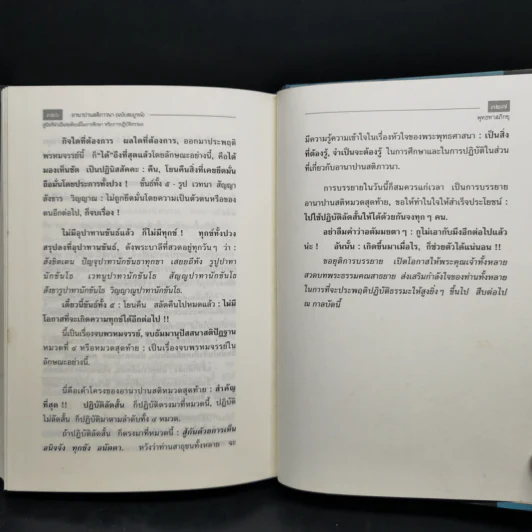 อานาปานสติภาวนา (ฉบับสมบูรณ์)
คู่มือที่จำเป็นพร้อมมีในการศึกษา หรือการปฏิบัติธรรมะ
กิจใดที่ต้องการ ผลใดที่ต้องการ, ออกมาประพฤติ
พรหมจรรย์นี้ ก็"ได้"ถึงที่สุดแล้วโดยลักษณะอย่างนี้, คือได้
มองเห็นชัด เป็นปฏินิสสัคคะ : คืน, โยนคืนสิ่งที่เคยยึดมั่น
ถือมั่นโดยประการทั้งปวง ! ขันธ์ทั้ง ๕ - รูป เวทนา สัญญา
สังขาร วิญญาณ : ไม่ถูกยึดมั่นโดยความเป็นตัวตนหรือของ
ตนอีกต่อไป, ก็จบเรื่อง !
ไม่มีอุปาทานขันธ์แล้ว ก็ไม่มีทุกข์ ! ทุกข์ทั้งปวง
สรุปลงที่อุปาทานขันธ์, ดังพระบาลีที่สวดอยู่ทุกวันๆ ว่า :
สังขิตเตน ปัญจุปาทานักขันธาทุกขา เสยยถีทัง รูปูปาทา
นักขันโธ เวทนูปาทานักขันโธ สัญญูปาทานักขันโธ
สังขารูปาทานักขันโธ วิญญาณูปาทานักขันโธ.
เดี๋ยวนี้ขันธ์ทั้ง ๕ : โยนคืน สลัดคืนไปหมดแล้ว : ไม่มี
โอกาสที่จะเกิดความทุกข์ได้อีกต่อไป !!
นี้เป็นเรื่องจบพรหมจรรย์, จบธัมมานุปัสสนาสติปัฏฐาน
หมวดที่ ๔ หรือหมวดสุดท้าย : เป็นเรื่องจบพรหมจรรย์ใน
ลักษณะอย่างนี้.
นี้คือเค้าโครงของอานาปานสติหมวดสุดท้าย : สำคัญ
ที่สุด !! ปฏิบัติลัดสั้น ก็ปฏิบัติตรงมาที่หมวดนี้, ปฏิบัติ
ไม่ลัดสั้น ก็ปฏิบัติมาตามลำดับทั้ง ๔ หมวด.
ถ้าปฏิบัติลัดสั้น ก็ตรงมาที่หมวดนี้ : สู้กันด้วยการเห็น
อนิจจัง ทุกขัง อนัตตา. หวังว่าท่านสาธุชนทั้งหลาย จะ
พุทธทาสภิกขุ
มีความรู้ความเข้าใจในเรื่องหัวใจของพระพุทธศาสนา : เป็นสิ่ง
ที่ต้องรู้, จำเป็นจะต้องรู้ ในการศึกษาและในการปฏิบัติในส่วน
ที่เกี่ยวกับอานาปานสติภาวนา.
การบรรยายในวันนี้ก็สมควรแก่เวลา เป็นการบรรยาย
อานาปานสติหมวดสุดท้าย, ขอให้ทำในใจให้สำเร็จประโยชน์ :
ไปใช้ปฏิบัติลัดสั้นให้ได้ด้วยกันจงทุก ๆ คน.
อย่าลืมคำว่าอตัมมยตา ๆ : กูไม่เอากับมึงอีกต่อไปแล้ว
น่ะ ! อันนั้น : เกิดขึ้นมาเมื่อไร, ก็ช่วยตัวได้แน่นอน !!
ขอยุติการบรรยาย เปิดโอกาสให้พระคุณเจ้าทั้งหลาย
สวดบทพระธรรมคณสาธยาย ส่งเสริมกำลังใจของท่านทั้งหลาย
ในการที่จะประพฤติปฏิบัติธรรมะให้สูงยิ่งๆ ขึ้นไป สืบต่อไป
ณ กาลบัดนี้